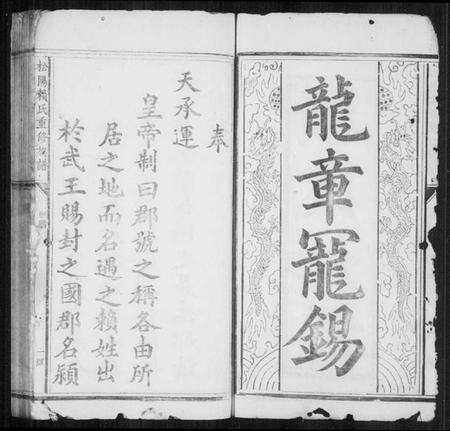 龍章寵錫
奉
天承運
皇帝制曰郡號之稱各由所
居之地而名遇之賴姓出
於武王賜封之國郡名潁
松陽賴氏重修族譜